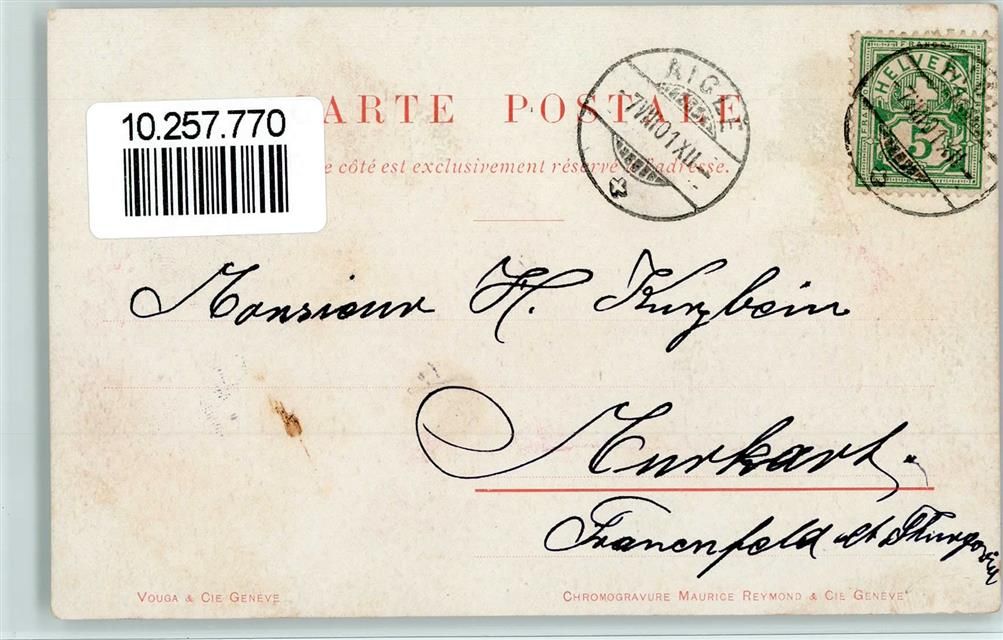 CARTE POSTALE
10.257.770
côté est exclusivement réservé l'adresse.
AIGLE
-7 VIII 01 XII-
FRANCO
HELVETIA
5
Monsieur H. Kurzbein
Murkart.
Frauenfeld Ct Thurgovie
VOUGA & CIE GENÈVE
CHROMOGRAVURE MAURICE REYMOND & CIE GENÈVE